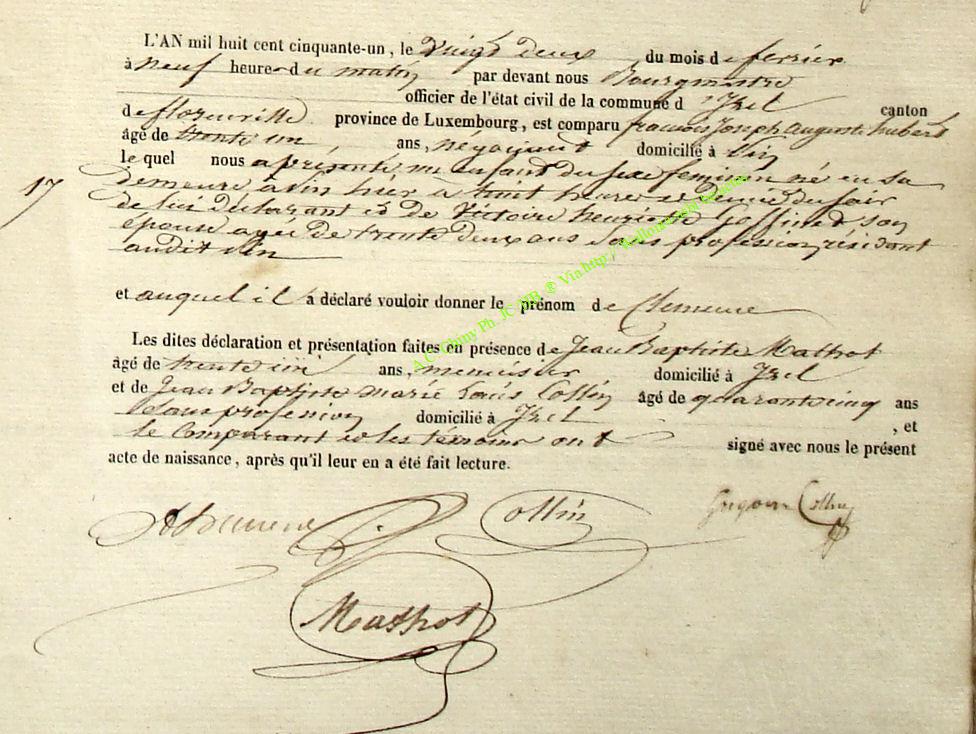 L'AN mil huit cent cinquante-un, le vingt deux du mois de fevrier
à neuf heures du matin par devant nous Bourgmestre
officier de l'état civil de la commune d'Izel canton
de florenville province de Luxembourg, est comparu francois Joseph Auguste hubert
âgé de trente un ans, négociant domicilié à Vin
le quel nous a présenté un enfant du sexe feminin né en sa
17 demeure a vin hier a huit heures et demie du soir
de lui déclarant et de Victoire henriette son
épouse agée de trente deux ans sans profession, résidant
audit vin
et auquel il a déclaré vouloir donner le prénom de Clemence
Les dites déclaration et présentation faites en présence de Jean Baptiste Mathot
âgé de trente ans, menuisier domicilié à Izel
et de Jean Baptiste marie Louis Collin âgé de quarante cinq ans
sans profession domicilié à Izel , et
le Comparant et les témoins ont signé avec nous le présent
acte de naissance, après qu'il leur en a été fait lecture.
Collin
Collin
Mathot
A.C. Chiny Ph. JC MB ® Via http:/